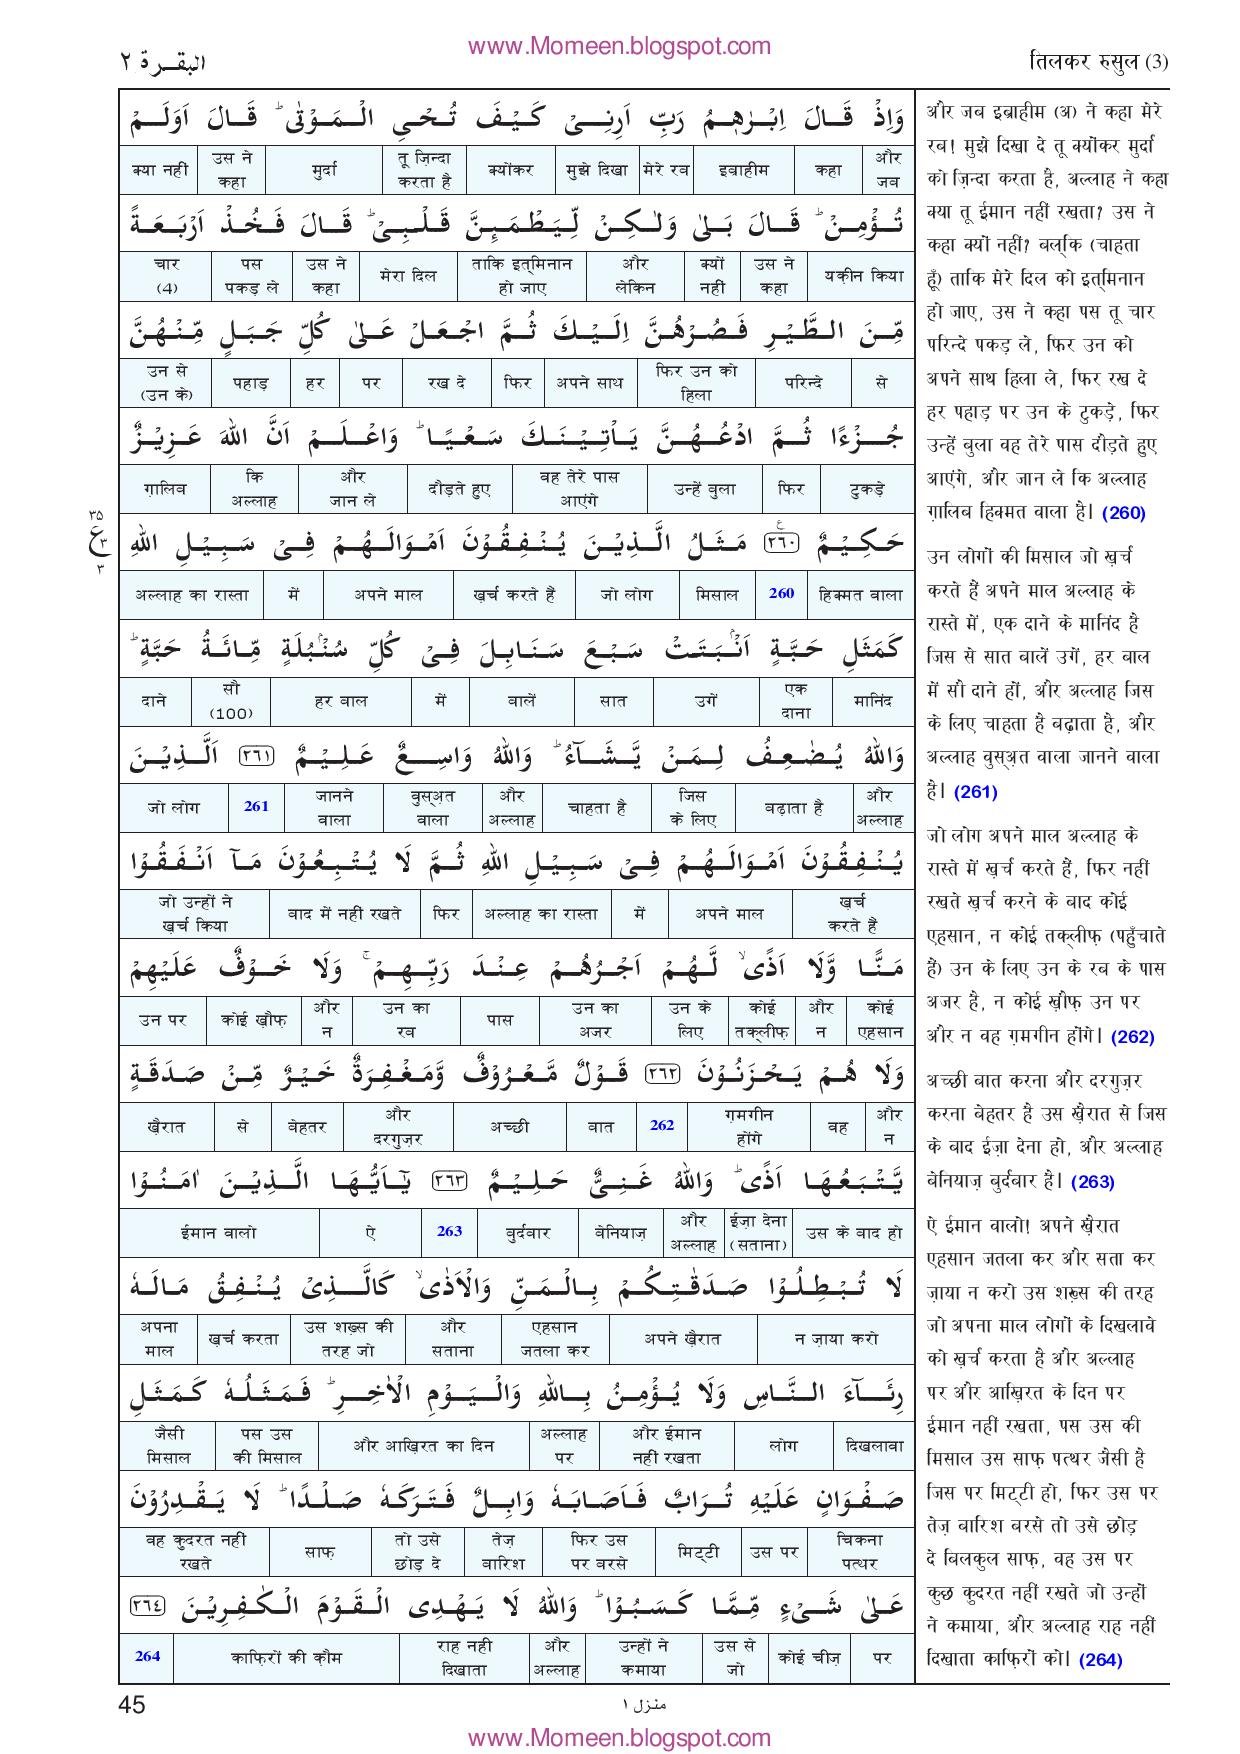 www.Momeen.blogspot.com
البقرة ٢
तिलकर रुसुल (3)
وَاِذْ قَالَ اِبْرٰهٖمُ رَبِّ اَرِنِیْ كَیْفَ تُحْیِ الْمَوْتٰی ؕ قَالَ اَوَلَمْ
और जब कहा इब्राहीम मेरे रब मुझे दिखा क्योंकर तू ज़िन्दा करता है मुर्दा उस ने कहा क्या नहीं
تُؤْمِنْ ؕ قَالَ بَلٰی وَلٰكِنْ لِّیَطْمَىِٕنَّ قَلْبِیْ ؕ قَالَ فَخُذْ اَرْبَعَةً
यक़ीन किया उस ने कहा क्यों नहीं और लेकिन ताकि इत्मिनान हो जाए मेरा दिल उस ने कहा पस पकड़ ले चार (4)
مِّنَ الطَّیْرِ فَصُرْهُنَّ اِلَیْكَ ثُمَّ اجْعَلْ عَلٰی كُلِّ جَبَلٍ مِّنْهُنَّ
से परिन्दे फिर उन को हिला अपने साथ फिर रख दे पर हर पहाड़ उन से (उन के)
جُزْءًا ثُمَّ ادْعُهُنَّ یَاْتِیْنَكَ سَعْیًا ؕ وَاعْلَمْ اَنَّ اللهَ عَزِیْزٌ
टुकड़े फिर उन्हें बुला वह तेरे पास आएंगे दौड़ते हुए और जान ले कि अल्लाह ग़ालिब
٣٥
ع ٣
٣
حَكِیْمٌ ٢٦٠ مَثَلُ الَّذِیْنَ یُنْفِقُوْنَ اَمْوَالَهُمْ فِیْ سَبِیْلِ اللهِ
हिक्मत वाला 260 मिसाल जो लोग ख़र्च करते हैं अपने माल में अल्लाह का रास्ता
كَمَثَلِ حَبَّةٍ اَنْۢبَتَتْ سَبْعَ سَنَابِلَ فِیْ كُلِّ سُنْۢبُلَةٍ مِّائَةُ حَبَّةٍ ؕ
मानिंद एक दाना उगें सात बालें में हर बाल सौ (100) दाने
وَاللهُ یُضٰعِفُ لِمَنْ یَّشَآءُ ؕ وَاللهُ وَاسِعٌ عَلِیْمٌ ٢٦١ اَلَّذِیْنَ
और अल्लाह बढ़ाता है जिस के लिए चाहता है और अल्लाह वुस्अ़त वाला जानने वाला 261 जो लोग
یُنْفِقُوْنَ اَمْوَالَهُمْ فِیْ سَبِیْلِ اللهِ ثُمَّ لَا یُتْبِعُوْنَ مَاۤ اَنْفَقُوْا
ख़र्च करते हैं अपने माल में अल्लाह का रास्ता फिर बाद में नहीं रखते जो उन्हों ने ख़र्च किया
مَنًّا وَّلَاۤ اَذًی ۙ لَّهُمْ اَجْرُهُمْ عِنْدَ رَبِّهِمْ ۚ وَلَا خَوْفٌ عَلَیْهِمْ
कोई एहसान और न कोई तक्लीफ़ उन के लिए उन का अजर पास उन का रब और न कोई ख़ौफ़ उन पर
وَلَا هُمْ یَحْزَنُوْنَ ٢٦٢ قَوْلٌ مَّعْرُوْفٌ وَّمَغْفِرَةٌ خَیْرٌ مِّنْ صَدَقَةٍ
और न वह ग़मगीन होंगे 262 बात अच्छी और दरगुज़र बेहतर से ख़ैरात
یَّتْبَعُهَاۤ اَذًی ؕ وَاللهُ غَنِیٌّ حَلِیْمٌ ٢٦٣ یٰۤاَیُّهَا الَّذِیْنَ اٰمَنُوْا
उस के बाद हो ईज़ा देना (सताना) और अल्लाह बेनियाज़ बुर्दबार 263 ऐ ईमान वालो
لَا تُبْطِلُوْا صَدَقٰتِكُمْ بِالْمَنِّ وَالْاَذٰی ۙ كَالَّذِیْ یُنْفِقُ مَالَهٗ
न ज़ाया करो अपने ख़ैरात एहसान जतला कर और सताना उस शख़्स की तरह जो ख़र्च करता अपना माल
رِئَآءَ النَّاسِ وَلَا یُؤْمِنُ بِاللهِ وَالْیَوْمِ الْاٰخِرِ ؕ فَمَثَلُهٗ كَمَثَلِ
दिखलावा लोग और ईमान नहीं रखता अल्लाह पर और आख़िरत का दिन पस उस की मिसाल जैसी मिसाल
صَفْوَانٍ عَلَیْهِ تُرَابٌ فَاَصَابَهٗ وَابِلٌ فَتَرَكَهٗ صَلْدًا ؕ لَا یَقْدِرُوْنَ
चिकना पत्थर उस पर मिट्टी फिर उस पर बरसे तेज़ बारिश तो उसे छोड़ दे साफ़ वह कुदरत नहीं रखते
عَلٰی شَیْءٍ مِّمَّا كَسَبُوْا ؕ وَاللهُ لَا یَهْدِی الْقَوْمَ الْكٰفِرِیْنَ ٢٦٤
पर कोई चीज़ उस से जो उन्हों ने कमाया और अल्लाह राह नही दिखाता काफ़िरों की क़ौम 264
और जब इब्राहीम (अ) ने कहा मेरे
रब! मुझे दिखा दे तू क्योंकर मुर्दा
को ज़िन्दा करता है, अल्लाह ने कहा
क्या तू ईमान नहीं रखता? उस ने
कहा क्यों नहीं? बल्कि (चाहता
हूँ) ताकि मेरे दिल को इत्मिनान
हो जाए, उस ने कहा पस तू चार
परिन्दे पकड़ ले, फिर उन को
अपने साथ हिला ले, फिर रख दे
हर पहाड़ पर उन के टुकड़े, फिर
उन्हें बुला वह तेरे पास दौड़ते हुए
आएंगे, और जान ले कि अल्लाह
ग़ालिब हिक्मत वाला है। (260)
उन लोगों की मिसाल जो ख़र्च
करते हैं अपने माल अल्लाह के
रास्ते में, एक दाने के मानिंद है
जिस से सात बालें उगें, हर बाल
में सौ दाने हों, और अल्लाह जिस
के लिए चाहता है बढ़ाता है, और
अल्लाह वुस्अ़त वाला जानने वाला
है। (261)
जो लोग अपने माल अल्लाह के
रास्ते में ख़र्च करते हैं, फिर नहीं
रखते ख़र्च करने के बाद कोई
एहसान, न कोई तक्लीफ़ (पहुँचाते
हैं) उन के लिए उन के रब के पास
अजर है, न कोई ख़ौफ़ उन पर
और न वह ग़मगीन होंगे। (262)
अच्छी बात करना और दरगुज़र
करना बेहतर है उस ख़ैरात से जिस
के बाद ईज़ा देना हो, और अल्लाह
बेनियाज़ बुर्दबार है। (263)
ऐ ईमान वालो! अपने ख़ैरात
एहसान जतला कर और सता कर
ज़ाया न करो उस शख़्स की तरह
जो अपना माल लोगों के दिखलावे
को ख़र्च करता है और अल्लाह
पर और आख़िरत के दिन पर
ईमान नहीं रखता, पस उस की
मिसाल उस साफ़ पत्थर जैसी है
जिस पर मिट्टी हो, फिर उस पर
तेज़ बारिश बरसे तो उसे छोड़
दे बिलकुल साफ़, वह उस पर
कुछ कुदरत नहीं रखते जो उन्हों
ने कमाया, और अल्लाह राह नहीं
दिखाता काफ़िरों को। (264)
45
منزل ١
www.Momeen.blogspot.com